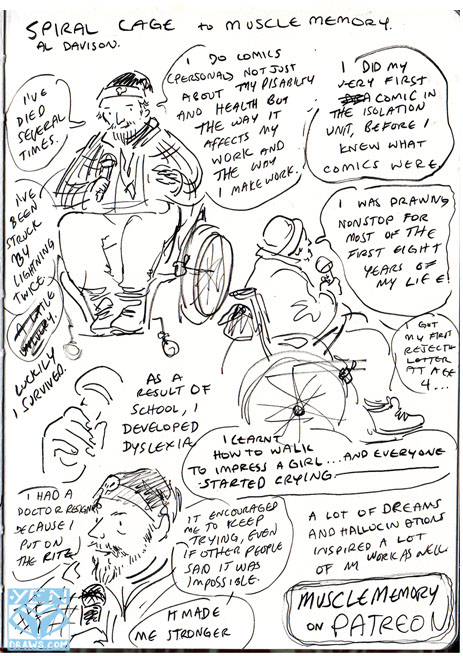 SPIRAL CAGE to MUSCLE MEMORY.
AL DAVISON.
I'VE
DIED
SEVERAL
TIMES.
I DO COMICS
(PERSONAL) NOT JUST
ABOUT MY DISABILITY
AND HEALTH BUT
THE WAY IT
AFFECTS MY
WORK AND
THE WAY
I MAKE WORK.
I DID MY
VERY FIRST
A COMIC IN
THE ISOLATION
UNIT, BEFORE I
KNEW WHAT
COMICS WERE.
I'VE
BEEN
STRUCK
BY
LIGHTNING
TWICE.
LUCKILY
I SURVIVED.
I WAS DRAWING
NONSTOP FOR
MOST OF THE
FIRST EIGHT
YEARS OF
MY LIFE!
I GOT
MY FIRST
REJECTN
LETTER
AT AGE
4...
AS A
RESULT OF
SCHOOL, I
DEVELOPED
DYSLEXIA.
I LEARNT
HOW TO WALK
TO IMPRESS A GIRL... AND EVERYONE
STARTED CRYING.
I HAD A
DOCTOR RESIGN
BECAUSE I
PUT ON
THE RITE
IT ENCOURAGED
ME TO KEEP
TRYING, EVEN
IF OTHER PEOPLE
SAID IT WAS
IMPOSSIBLE.
IT MADE
ME STRONGER
A LOT OF DREAMS
AND HALLUCINATIONS
INSPIRED A LOT
OF M WORK AS WELL
MUSCLE MEMORY
ON PATREON
YEN
DRAWS.COM